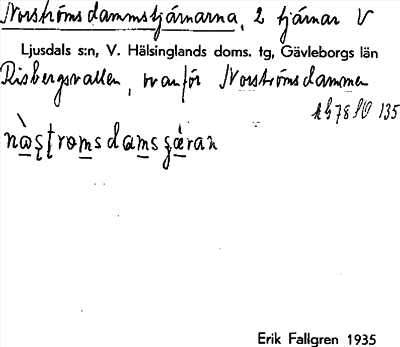 Norströmsdammstjärnarna, 2 tjärnar V
Ljusdals s:n, V. Hälsinglands doms. tg, Gävleborgs län
Risbergsvallen, ovanför Norströmsdammen
78 SO 135
Erik Fallgren 1935